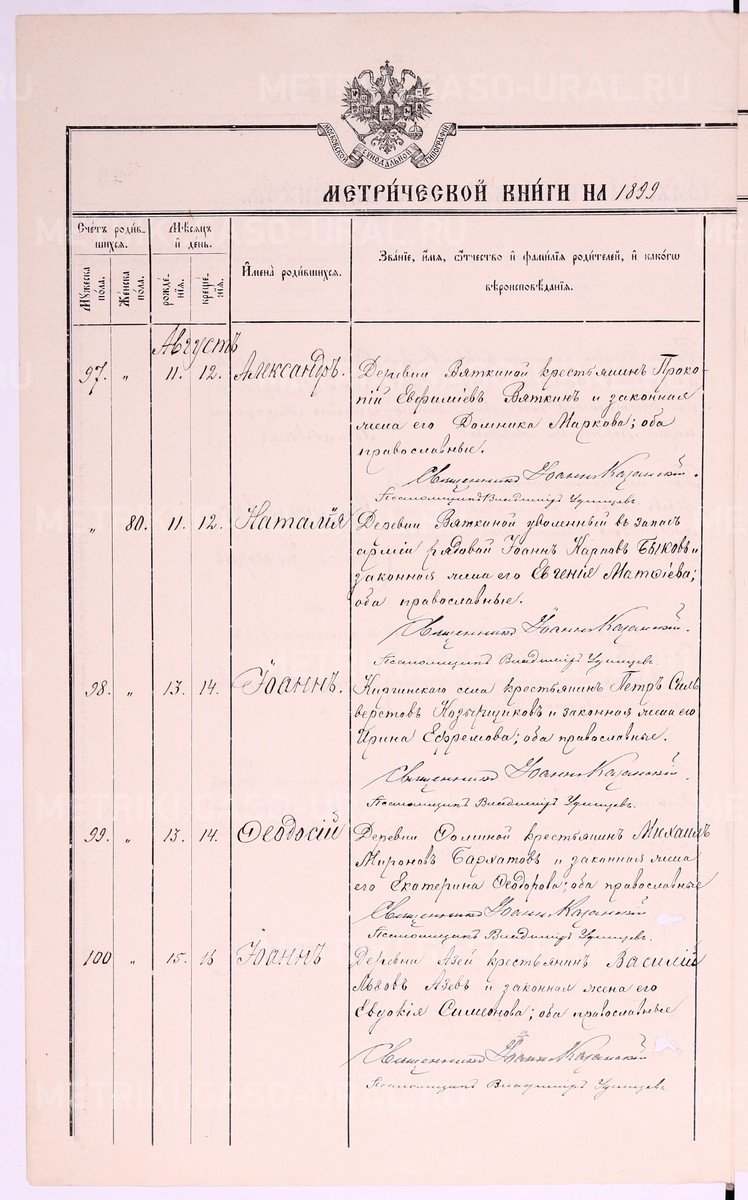 МОСКОВСКОЙ СѴНОДАЛЬНОЙ ТИПОГРАФІИ
МЕТРИ́ЧЕСКОЙ КНИ́ГИ НА 1899
Сче́тъ роди́вшихся.
Мѣ́сяцъ и́ день.
Имена̀ роди́вшихся.
Зва́нїе, и́мя, ѻ҆́тчество и҆ фами́лїя роди́телей, и҆ какѡ́гѡ вѣроисповѣ́данїя.
Мꙋ́жеска по́ла.
Же́нска по́ла.
рожде́нїя.
креще́нїя.
Августъ
97. „ 11. 12. Александръ. Деревни Вяткиной крестьянинъ Проко-
пій Евфиміевъ Вяткинъ и законная
жена его Домника Маркова; оба
православные.
Священникъ Іоаннъ Казанскій.
Псаломщикъ Владиміръ
„ 80. 11. 12. Наталія Деревни Вяткиной уволенный въ запасъ
арміи рядовой Іоаннъ Карповъ Быковъ и
законная жена его Евгенія Матѳіева;
оба православные.
Священникъ Іоаннъ Казанскій.
Псаломщикъ Владиміръ
98. „ 13. 14. Іоаннъ. Киргинскаго села крестьянинъ Петръ Силь
верстовъ Кодырщиковъ и законная жена его
Ирина Ефремова; оба православные.
Священникъ Іоаннъ Казанскій.
Псаломщикъ Владиміръ
99. „ 13. 14. Ѳеодосій Деревни Ѳоминой крестьянинъ Михаилъ
Мироновъ Бархатовъ и законная жена
его Екатерина Ѳеодорова; оба православные
Священникъ Іоаннъ Казанскій
Псаломщикъ Владиміръ
100 „ 15. 16 Іоаннъ Деревни Азей крестьянинъ Василій
Львовъ Азевъ и законная жена его
Евдокія Симеонова; оба православные
Священникъ Іоаннъ Казанскій
Псаломщикъ Владиміръ